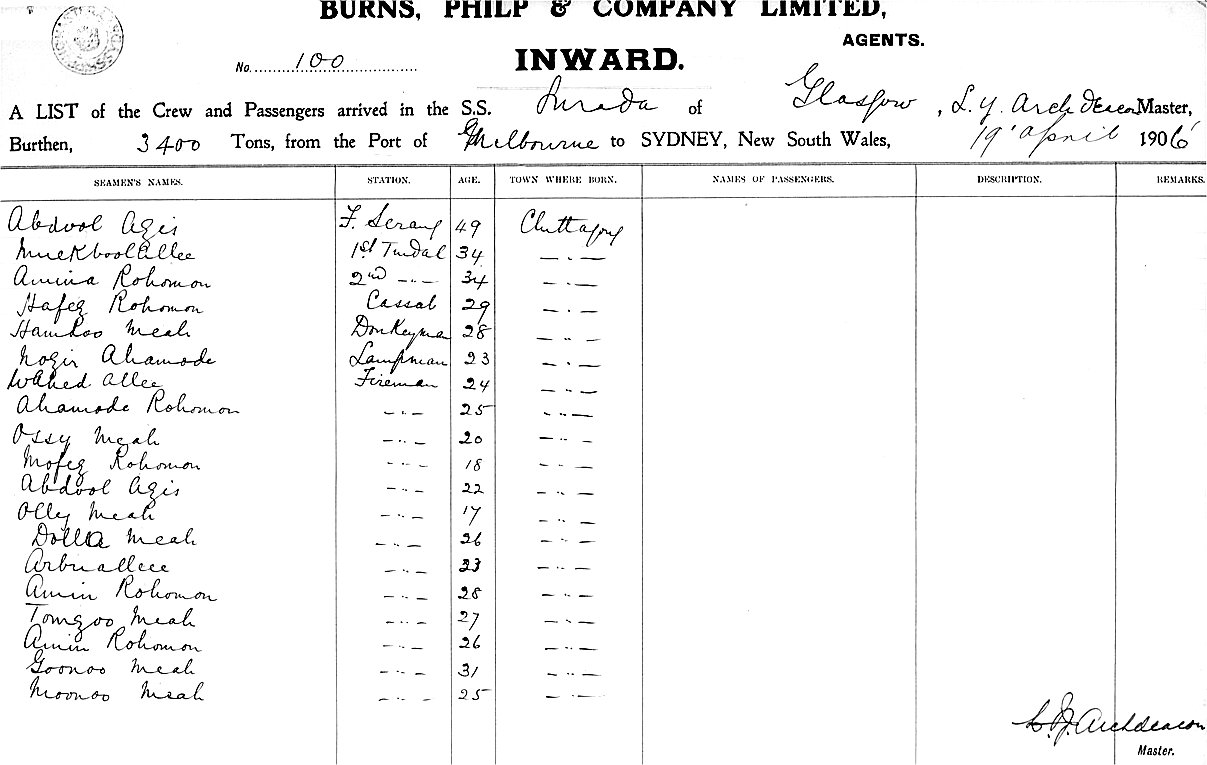 BURNS, PHILP & COMPANY LIMITED,
AGENTS.
No. 100
INWARD.
A LIST of the Crew and Passengers arrived in the S.S. Jurada of Glasgow, L. Y. Archdeacon Master,
Burthen, 3400 Tons, from the Port of Melbourne to SYDNEY, New South Wales, 19' April 1906
SEAMEN'S NAMES. STATION. AGE. TOWN WHERE BORN. NAMES OF PASSENGERS. DESCRIPTION. REMARKS.
Abdool Azis F. Serang 49 Chittagong
Muckbool Allee 1st Tindal 34 — " —
Amina Rohomon 2nd — " — 34 — " —
Hafez Rohomon Cassab 29 — " —
Meah Donkeyman 28 — " —
Nozir Ahamode Lampman 23 — " —
Wahed Allee Fireman 24 — " —
Ahamode Rohomon — " — 25 — " —
Ossy Meah — " — 20 — " —
Mofez Rohomon — " — 18 — " —
Abdool Azis — " — 22 — " —
Olley Meah — " — 17 — " —
Dolla Meah — " — 26 — " —
— " — 23 — " —
Amin Rohomon — " — 28 — " —
Tomzoo Meah — " — 27 — " —
Amin Rohomon — " — 26 — " —
Goonoo Meah — " — 31 — " —
Moonoo Meah — " — 25 — " —
Archdeacon
Master.